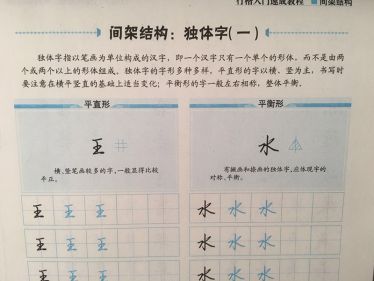 行楷入门速成教程 ■间架结构
间架结构：独体字(一)
独体字指以笔画为单位构成的汉字，即一个汉字只有一个单个的形体，而不是由两
个或两个以上的形体组成。独体字的字形多种多样，平直形的字以横、竖为主，书写时
要注意在横平竖直的基础上适当变化；平衡形的字一般左右相称，整体平衡。
平直形 平衡形
王 水
横、竖笔画较多的字，一般显得比较
平正。
有撇画和捺画的独体字，应体现字的
对称、平衡。
王 王 王 水 水 水
王 王 王 水 水 水
王 王 王 水 水 水